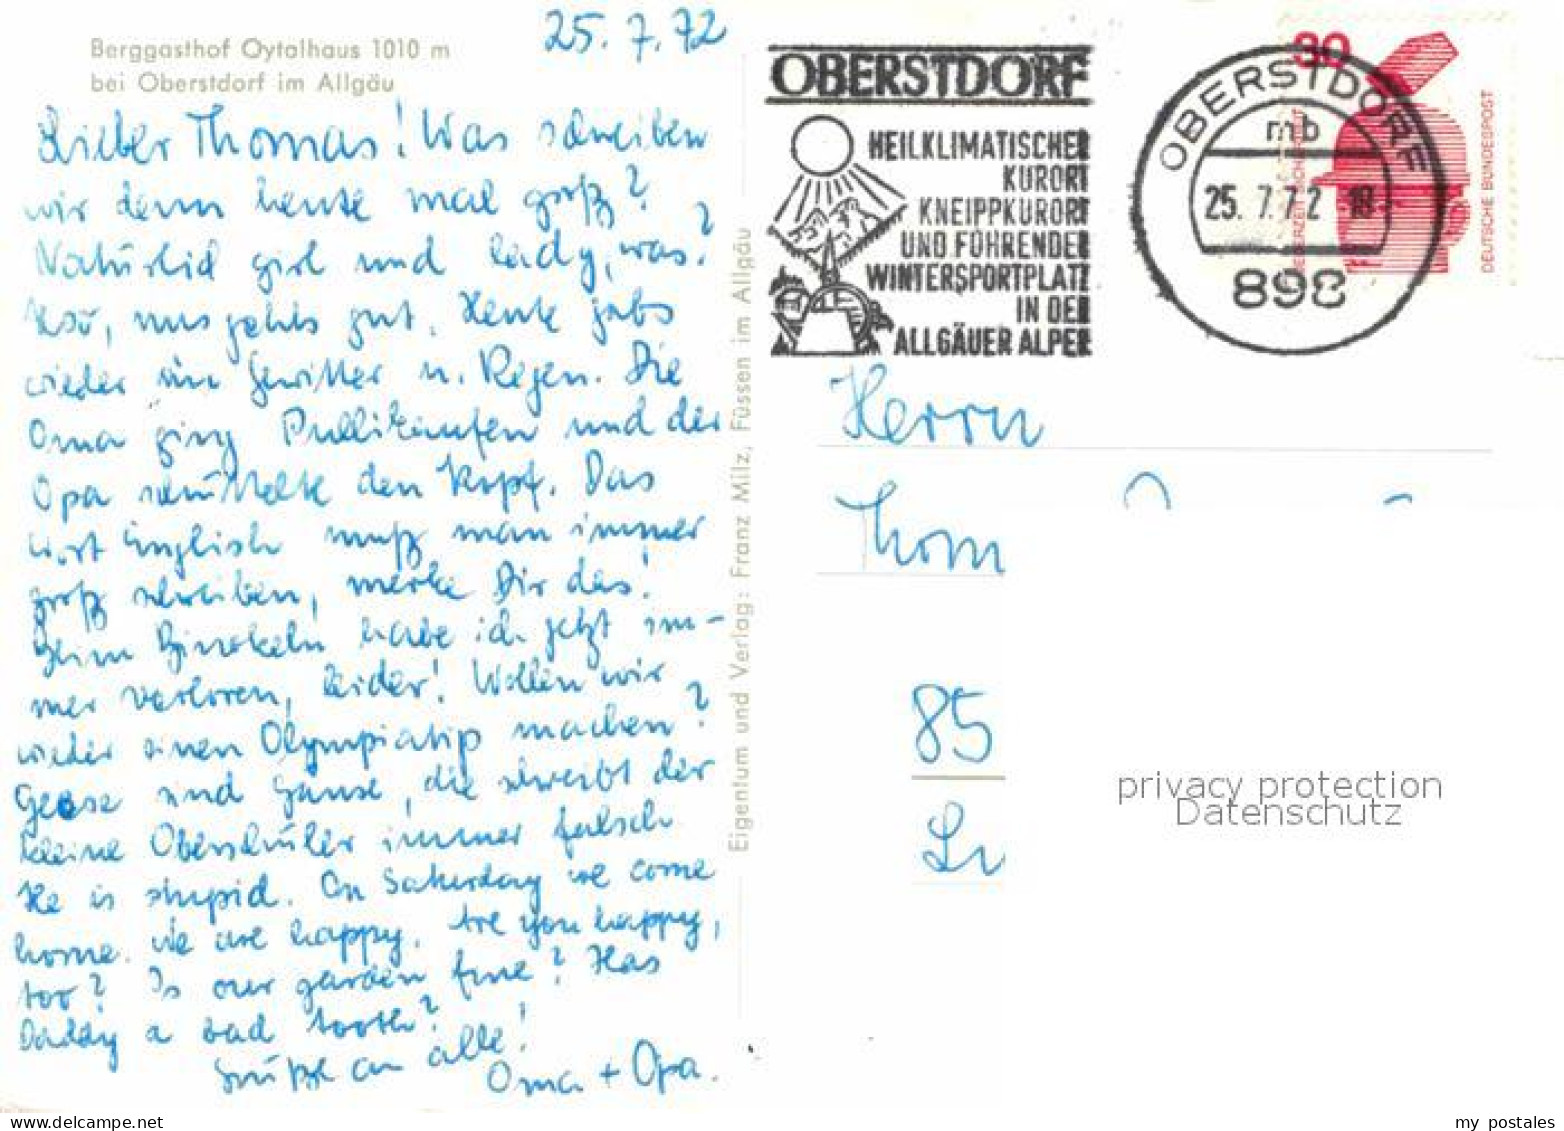 Berggasthof Oytalhaus 1010 m
bei Oberstdorf im Allgäu
25.7.72
Lieber Thomas! Was schreiben
wir denn heute mal groß?
Natürlich girl und lady, was?
Also, uns gehts gut. Heute gabs
wieder ein Gewitter u. Regen. Die
Oma ging Pullikaufen und der
Opa schüttelte den Kopf. Das
Wort Englisch muß man immer
groß schreiben, merke Dir das!
Beim Binokeln habe ich jetzt im-
mer verloren, leider! Wollen wir
wieder einen Olympiatip machen?
Geese und Gänse, die schreibt der
kleine Oberschüler immer falsch
He is stupid. On Saturday we come
home. We are happy. Are you happy,
too? Is our garden fine? Has
Daddy a bad tooth?
Grüße an alle!
Oma + Opa.
Eigentum und Verlag: Franz Milz, Füssen im Allgäu
OBERSTDORF
HEILKLIMATISCHER
KURORT
KNEIPPKURORT
UND FÜHRENDER
WINTERSPORTPLATZ
IN DEN
ALLGÄUER ALPEN
OBERSTDORF
mb
25.7.72 18
898
30
DEUTSCHE BUNDESPOST
Herrn
Thom
85
privacy protection
Datenschutz
my postales
www.delcampe.net